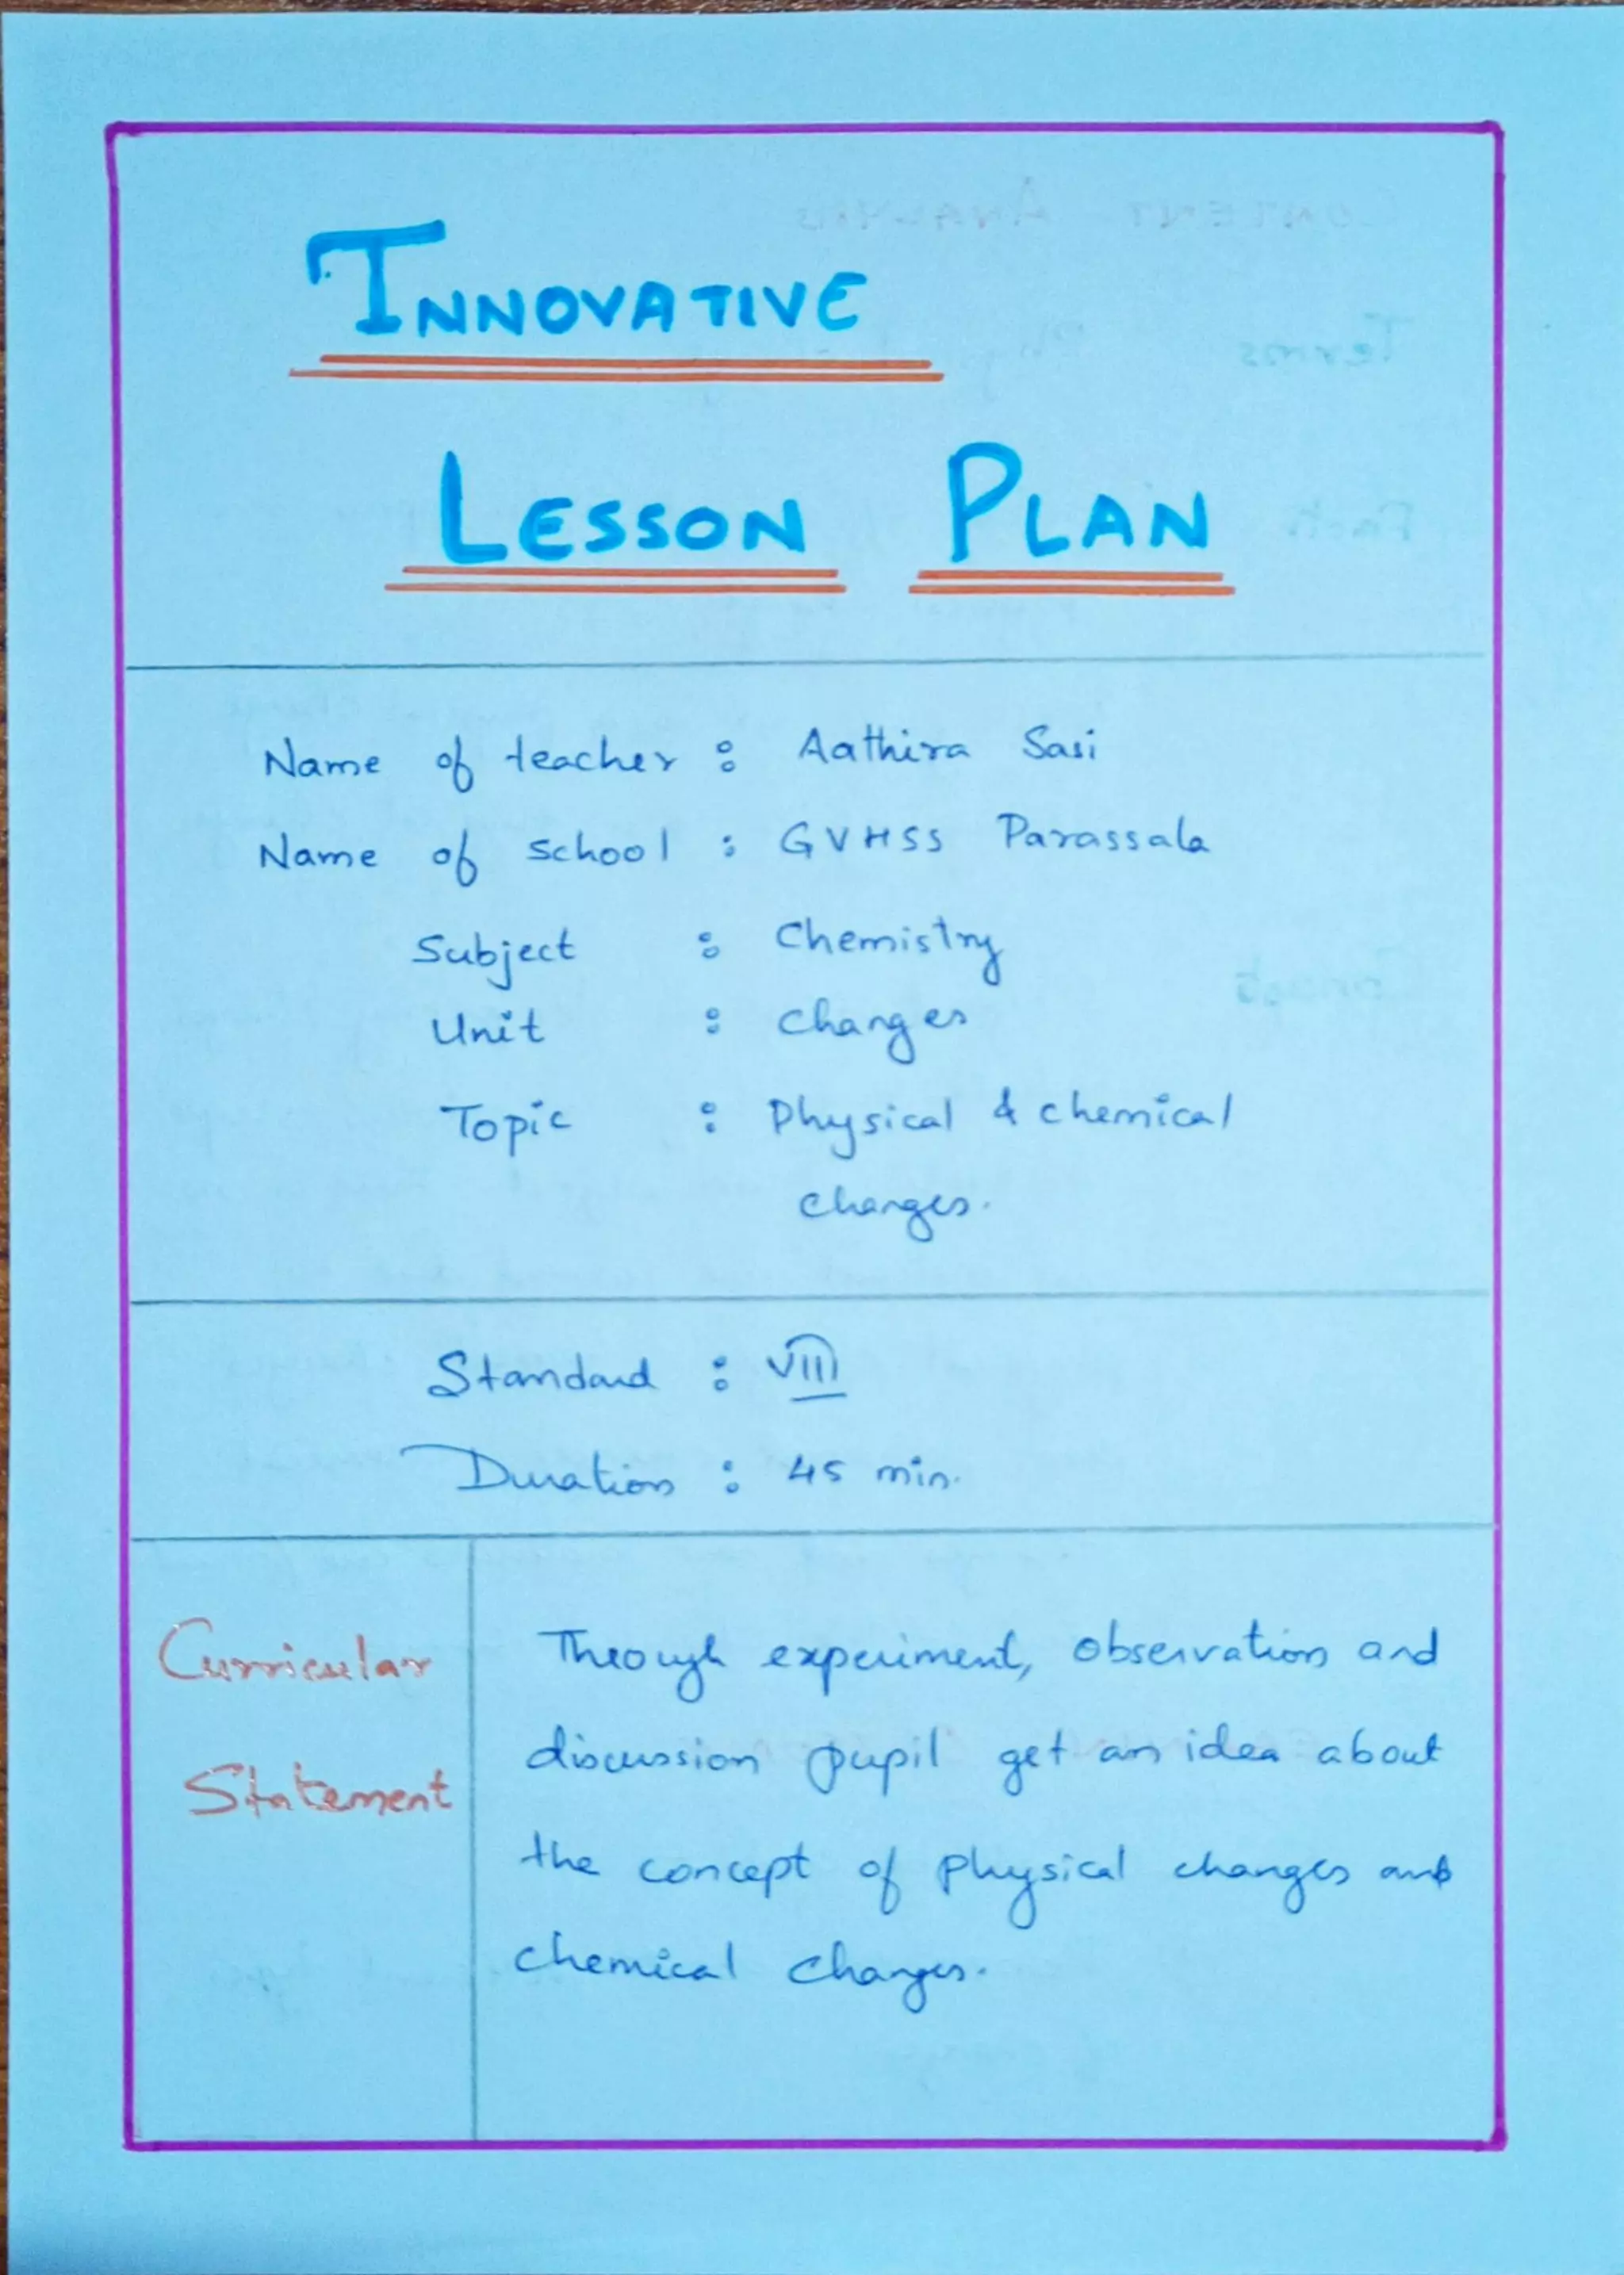 INNOVATIVE
LESSON PLAN
Name of teacher : Aathira Sasi
Name of school : GVHSS Parassala
Subject : Chemistry
Unit : Changes
Topic : Physical & chemical
changes.
Standard : VIII
Duration : 45 min.
Curricular
Statement
Through experiment, observation and
discussion pupil get an idea about
the concept of physical changes and
chemical changes.
CONTENT ANALYSIS
Terms